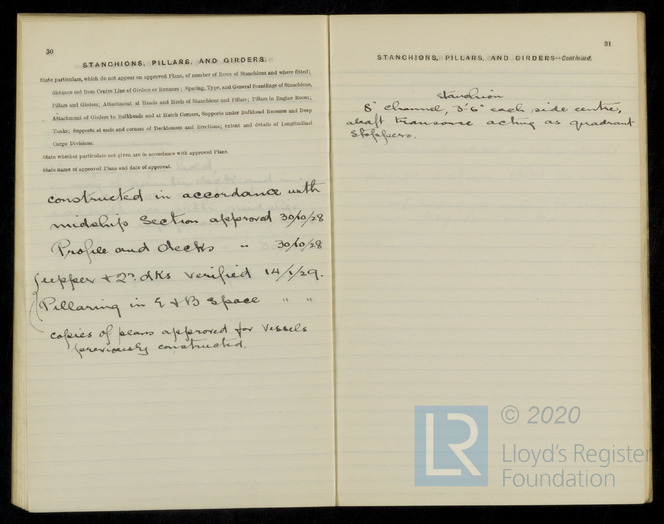 30
STANCHIONS, PILLARS, AND GIRDERS.
State particulars, which do not appear on approved Plans, of number of Rows of Stanchions and where fitted;
distance out from Centre Line of Girders or Runners; Spacing, Type, and General Scantlings of Stanchions,
Pillars and Girders; Attachment at Heads and Heels of Stanchions and Pillars; Pillars in Engine Room;
Attachment of Girders to Bulkheads and at Hatch Corners, Supports under Bulkhead Recesses and Deep
Tanks; Supports at ends and corners of Deckhouses and Erections; extent and details of Longitudinal
Cargo Divisions.
State whether particulars not given are in accordance with approved Plans.
State name of approved Plans and date of approval.
constructed in accordance with
midship Section approved 30/10/28
Profile and decks " 30/10/28
upper + 2nd dks verified 14/1/29.
Pillaring in E & B Space " "
copies of plans approved for Vessels
previously constructed.
31
STANCHIONS, PILLARS, AND GIRDERS—Continued.
Stanchion
8" channel, 3'6" each side centre,
abaft transome acting as quadrant
Stoppers.
LR
© 2020
Lloyd's Register
Foundation